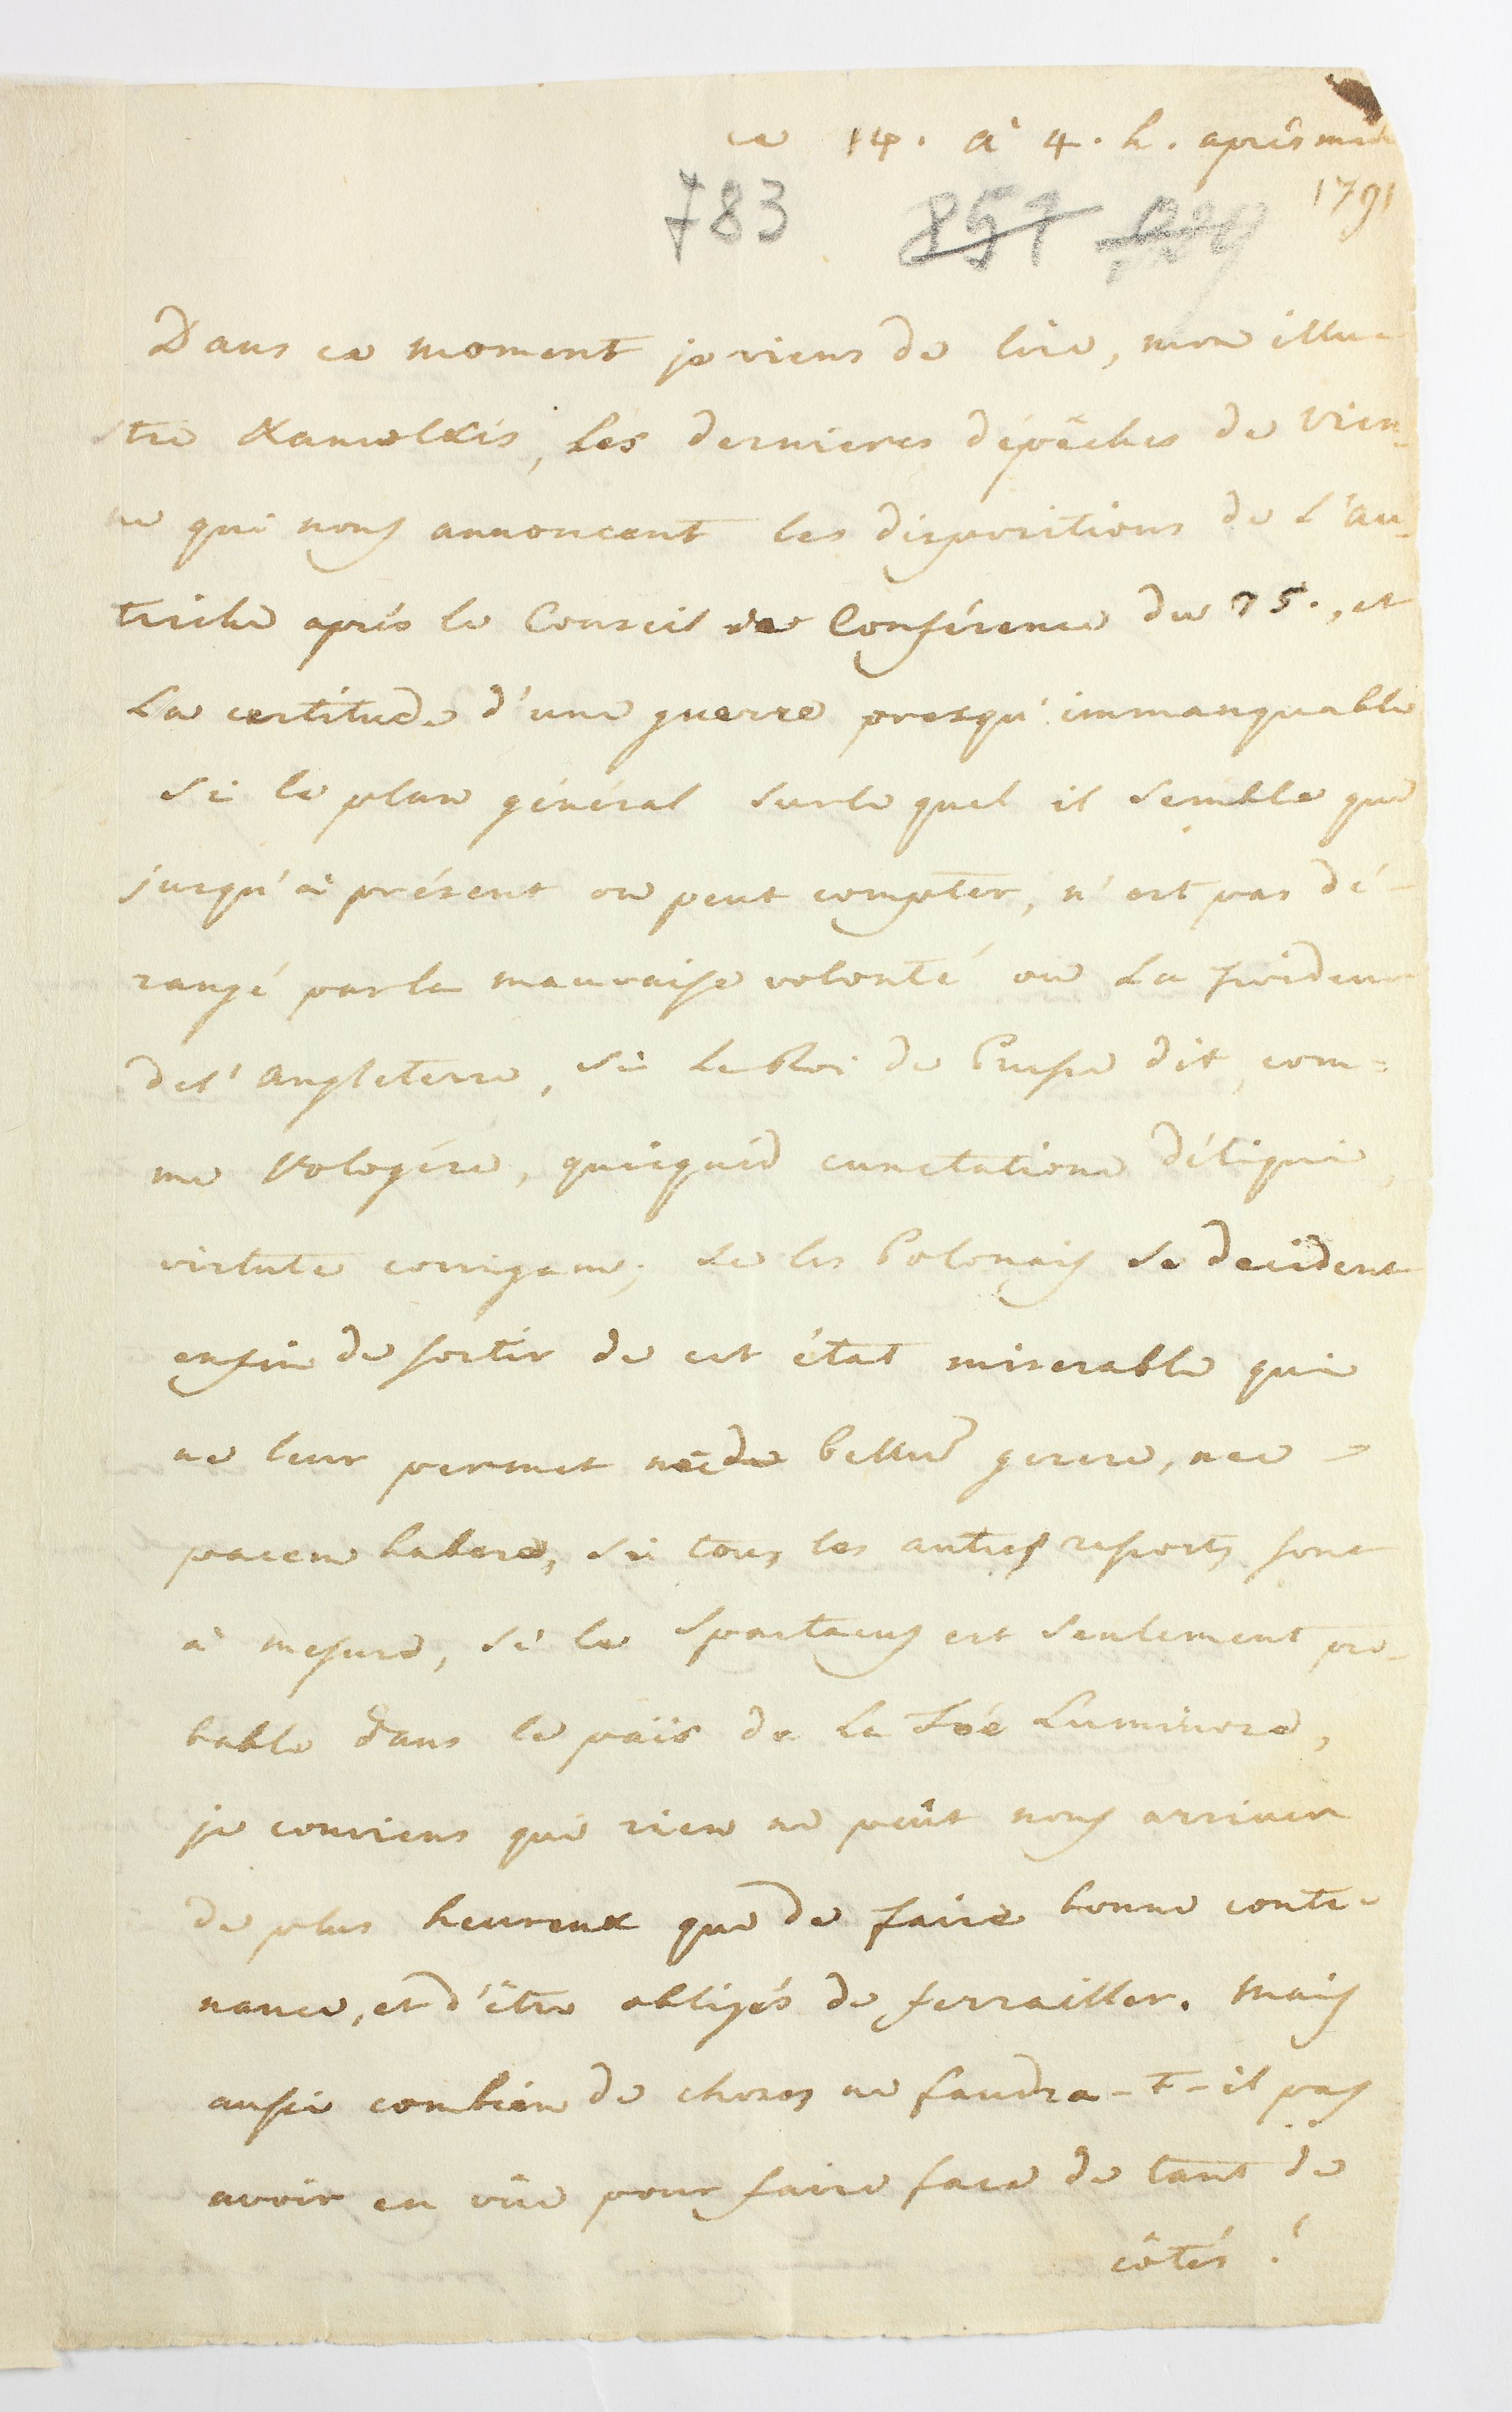 ce 14. à 4. h. après midi
783 859 1791
Dans ce moment je viens de lire, mon illu-
stre Xamolxis, les dernieres dépêches de Vien-
ne qui nous annoncent les dispositions de l'au-
triche après le Conseil de Conférence du 75., et
La certitude d'une guerre presqu'immanquable
si le plan général sur le quel il semble que
jusqu'à présent on peut compter, n'est pas dé-
rangé par la mauvaise volonté ou La froideur
de l'angleterre, si Le Roi de Prusse dit, com=
me Vologése, quicquid cunctatione déliqui,
virtute corrigam; se les Polonais se decident
enfin de sortir de cet état miserable qui
ne leur permet nec bellum gerere, nec
pacem habere, si tous les autres ressorts sont
à mesure, si le Spartacus est seulement pro-
bable dans le païs de la Fée Lumineuse,
je conviens que rien ne peût nous arriver
de plus heureux que de faire bonne conte-
nance, et d'être obligés de ferrailler. Mais
aussi combien de choses ne faudra-t-il pas
avoir en vûe pour faire face de tant de
côtés!